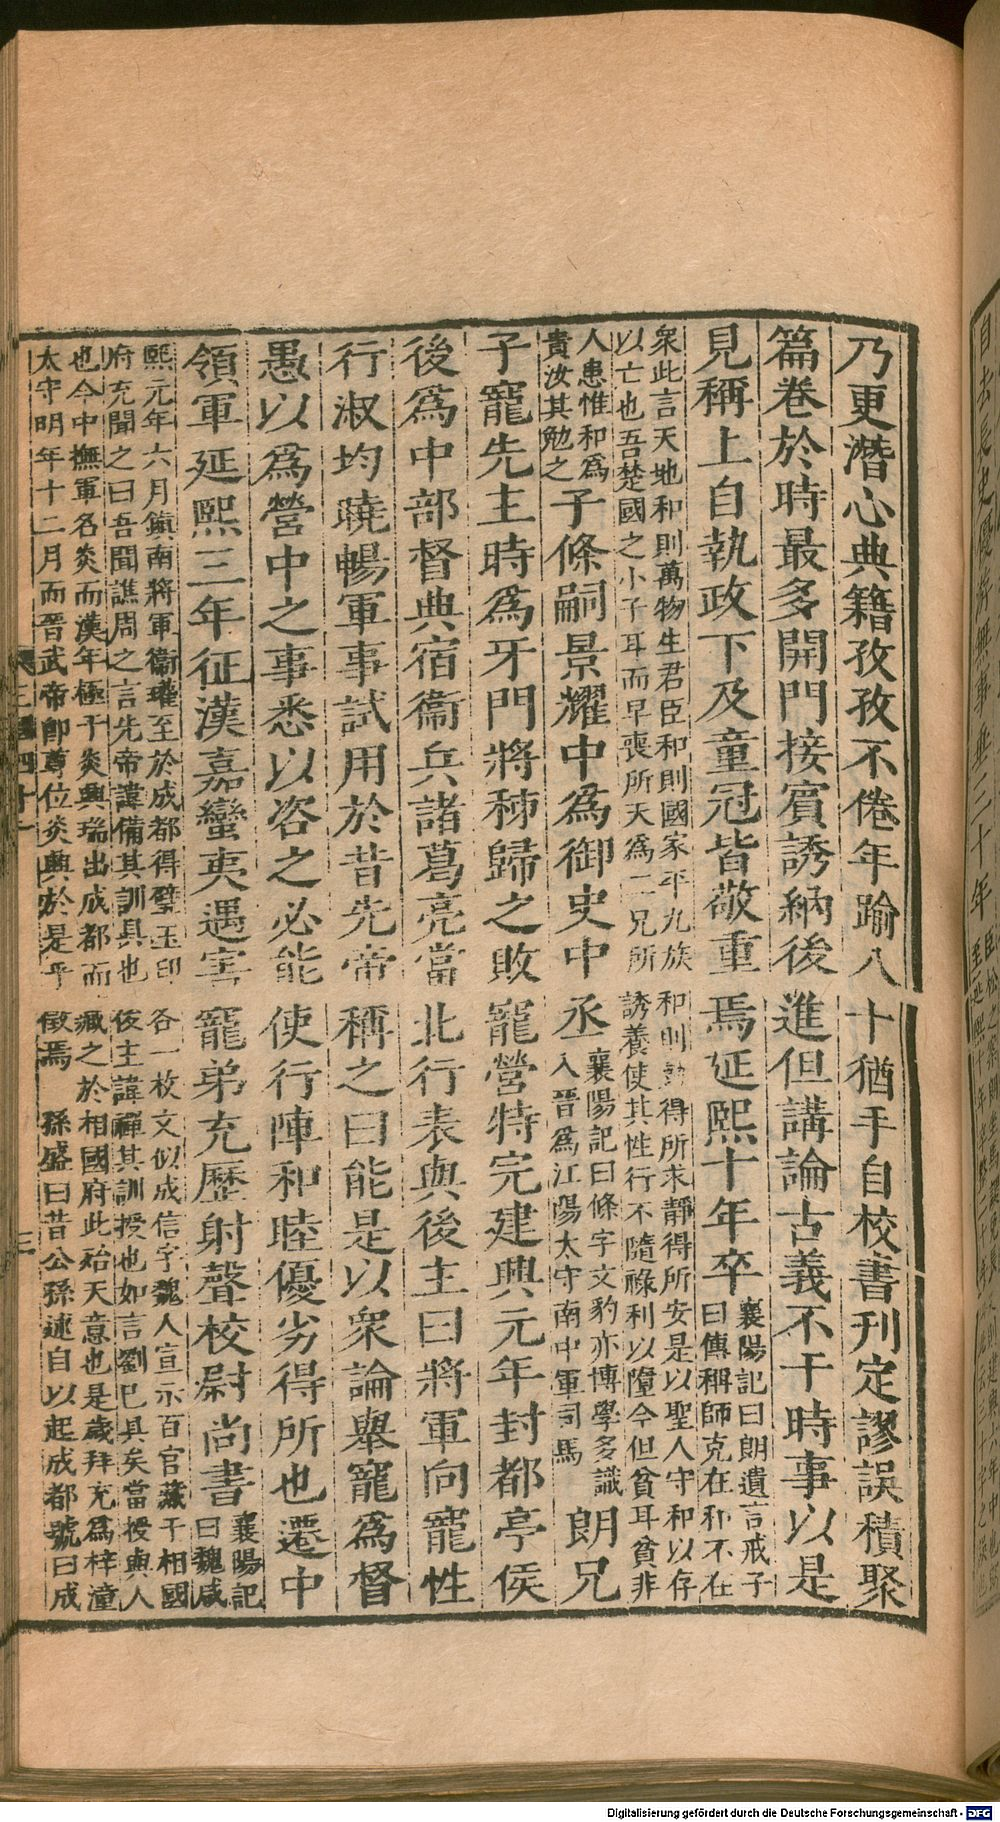 乃更潛心典籍孜孜不倦年踰八十猶手自校書刊定謬誤積聚
篇卷於時最多開門接賓誘納後進但講論古義不干時事以是
見稱上自執政下及童冠皆敬重焉延熙十年卒
襄陽記曰朗遺言戒子
曰傳稱師克在和不在
衆此言天地和則萬物生君臣和則國家平九族和則動得所求靜得所安是以聖人守和以存
以亡也吾楚國之小子耳而早喪所天爲二兄所誘養使其性行不隨祿利以墮今但貧耳貧非
人患惟和爲
貴汝其勉之
子條嗣景耀中爲御史中丞
襄陽記曰條字文豹亦博學多識
入晉爲江陽太守南中軍司馬
朗兄
子寵先主時爲牙門將秭歸之敗寵營特完建興元年封都亭侯
後爲中部督典宿衞兵諸葛亮當北行表與後主曰將軍向寵性
行淑均曉暢軍事試用於昔先帝稱之曰能是以衆論舉寵爲督
愚以爲營中之事悉以咨之必能使行陣和睦優劣得所也遷中
領軍延熙三年征漢嘉蠻夷遇害寵弟充歷射聲校尉尚書
襄陽記
曰魏咸
熙元年六月鎮南將軍衞瓘至於成都得璧玉印各一枚文似成信字魏人宣示百官藏于相國
府充聞之曰吾聞譙周之言先帝諱備其訓具也後主諱禪其訓授也如言劉已具矣當授與人
也今中撫軍名炎而漢年極于炎興瑞出成都而藏之於相國府此殆天意也是歲拜充爲梓潼
太守明年十二月而晉武帝卽尊位炎興於是乎徵焉 孫盛曰昔公孫述自以起成都號曰成
四十一
三
Digitalisierung gefördert durch die Deutsche Forschungsgemeinschaft - DFG